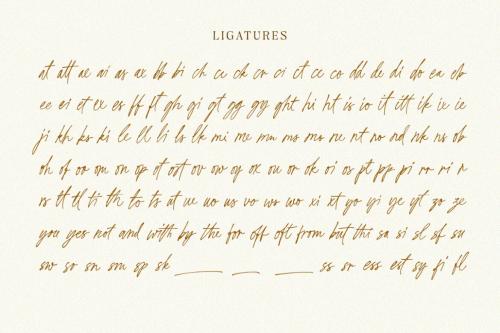 LIGATURES
at att ae ai as ax bb bi ch cu ck cr ci ct cc co dd de di do ea eb
ee ei et ex es ff ft gh gi gt gg gy ght hi ht is io it itt ik ix ie
ji kh ks ki le ll li ls lk mi me mm ms mo ne nt no nd nk ns ob
oh of oo om on op ot ott ov ow oy ox ou or ok oi os pt pp pi ro ri r
rs tt tl ti th to ts at ue uo us vo ws wo xi xt yo yi ye yt zo ze
you yes not and with by the for off oft from but thi sa si sl sf su
sw so sn sm sp sk ss sr ess est sy fi fl